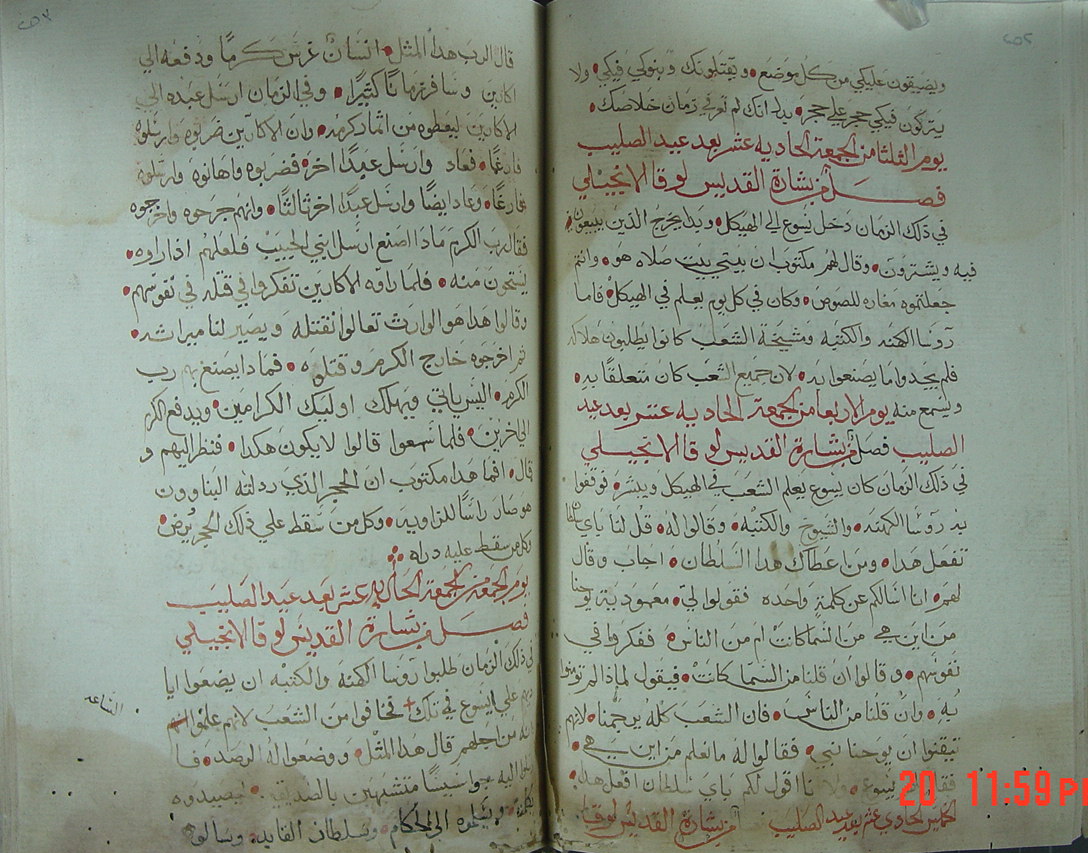 ويضيقون عليكي من كل موضع • ويقتلونك وبنوكي فيكي • ولا
يتركون فيكي حجر علي حجر • بدل انك لم تعرفي زمان خلاصك •
يوم الثلثا من الجمعة الحاديه عشر بعد عيد الصليب
فصل من بشارة القديس لوقا الانجيلي
في ذلك الزمان دخل يسوع الي الهيكل • وبدا يخرج الذين يبيعون
فيه ويشترون • وقال لهم مكتوب ان بيتي بيت صلاه هو • وانتم
جعلتموه مغاره للصوص • وكان في كل يوم يعلم في الهيكل • فاما
روسا الكهنه والكتبه ومشيخة الشعب كانوا يطلبون هلاكه
فلم يجدوا ما يصنعوا به • لان جميع الشعب كان متعلقا به •
وليسمع منه يوم الاربعا من الجمعة الحاديه عشر بعد عيد
الصليب فصل من بشارة القديس لوقا الانجيلي
في ذلك الزمان كان يسوع يعلم الشعب في الهيكل ويبشر • فوقفوا
به روسا الكهنه • والشيوخ والكتبه • وقالوا له • قل لنا باي سلطان
تفعل هدا • ومن اعطاك هدا السلطان • اجاب وقال
لهم • انا اسالكم عن كلمة واحده فقولوا لي • معمودية يوحنا
من اين هي من السما كانت ام من الناس • ففكروا في
نفوسهم • وقالوا ان قلنا من السما كانت • فيقول لماذا لم تومنوا
به • وان قلنا من الناس • فان الشعب كله يرجمنا • لانهم
تيقنوا ان يوحنا نبي • فقالوا له ما نعلم من اين هي •
فقال يسوع • ولا انا اقول لكم باي سلطان افعل هدا •
الخميس الحادي عشر بعد عيد الصليب من بشارة القديس لوقا
20 11:59 P
قال الرب هدا المثل • انسان غرس كرما ودفعه الي
اكارين وسافر زمانا كثيرا • وفي الزمان ارسل عبده الي
الاكارين ليعطوه من اثمار كرمه • وان الاكارين ضربوه وارسلوه
فارغا • فعاد وارسل عبدا اخر • فضربوه واهانوه وارسلوه
فارغا • وعاد ايضا وارسل عبدا اخر ثالثا • وانهم جرحوه واخرجوه
فقال رب الكرم مادا اصنع ارسل ابني الحبيب فلعلهم ادا راوه •
يستحون منه • فلما راوه الاكارين تفكروا في قتله في نفوسهم •
وقالوا هدا هو الوارث تعالوا نقتله ويصير لنا ميراثه •
ثم اخرجوه خارج الكرم وقتلوه • فمادا يصنع بهم رب
الكرم • اليس ياتي ويهلك اوليك الكرامين • ويدفع الكرم
الي اخرين • فلما سمعوا قالوا لا يكون هكدا • فنظر اليهم و
قال • افما هدا مكتوب ان الحجر الذي ردلته البناوون
هو صار راسا للزاوية • وكل من سقط علي ذلك الحجر يرض •
وكل من سقط عليه دراه
يوم الجمعة من الجمعة الحاديه عشر بعد عيد الصليب
فصل من بشارة القديس لوقا الانجيلي
في ذلك الزمان طلبوا روسا الكهنه والكتبه ان يضعوا ايا
ديهم علي ايسوع في تلك + فخافوا من الشعب لانهم علموا
الساعة
انه من اجلهم قال هدا المثل • ووضعوا له الرصد •
اليه جواسيسا متشبهين بالصديقين • ليصيدوه
بكلمة • ويسلموه الي الحكام • وسلطان القايد • وسالوه